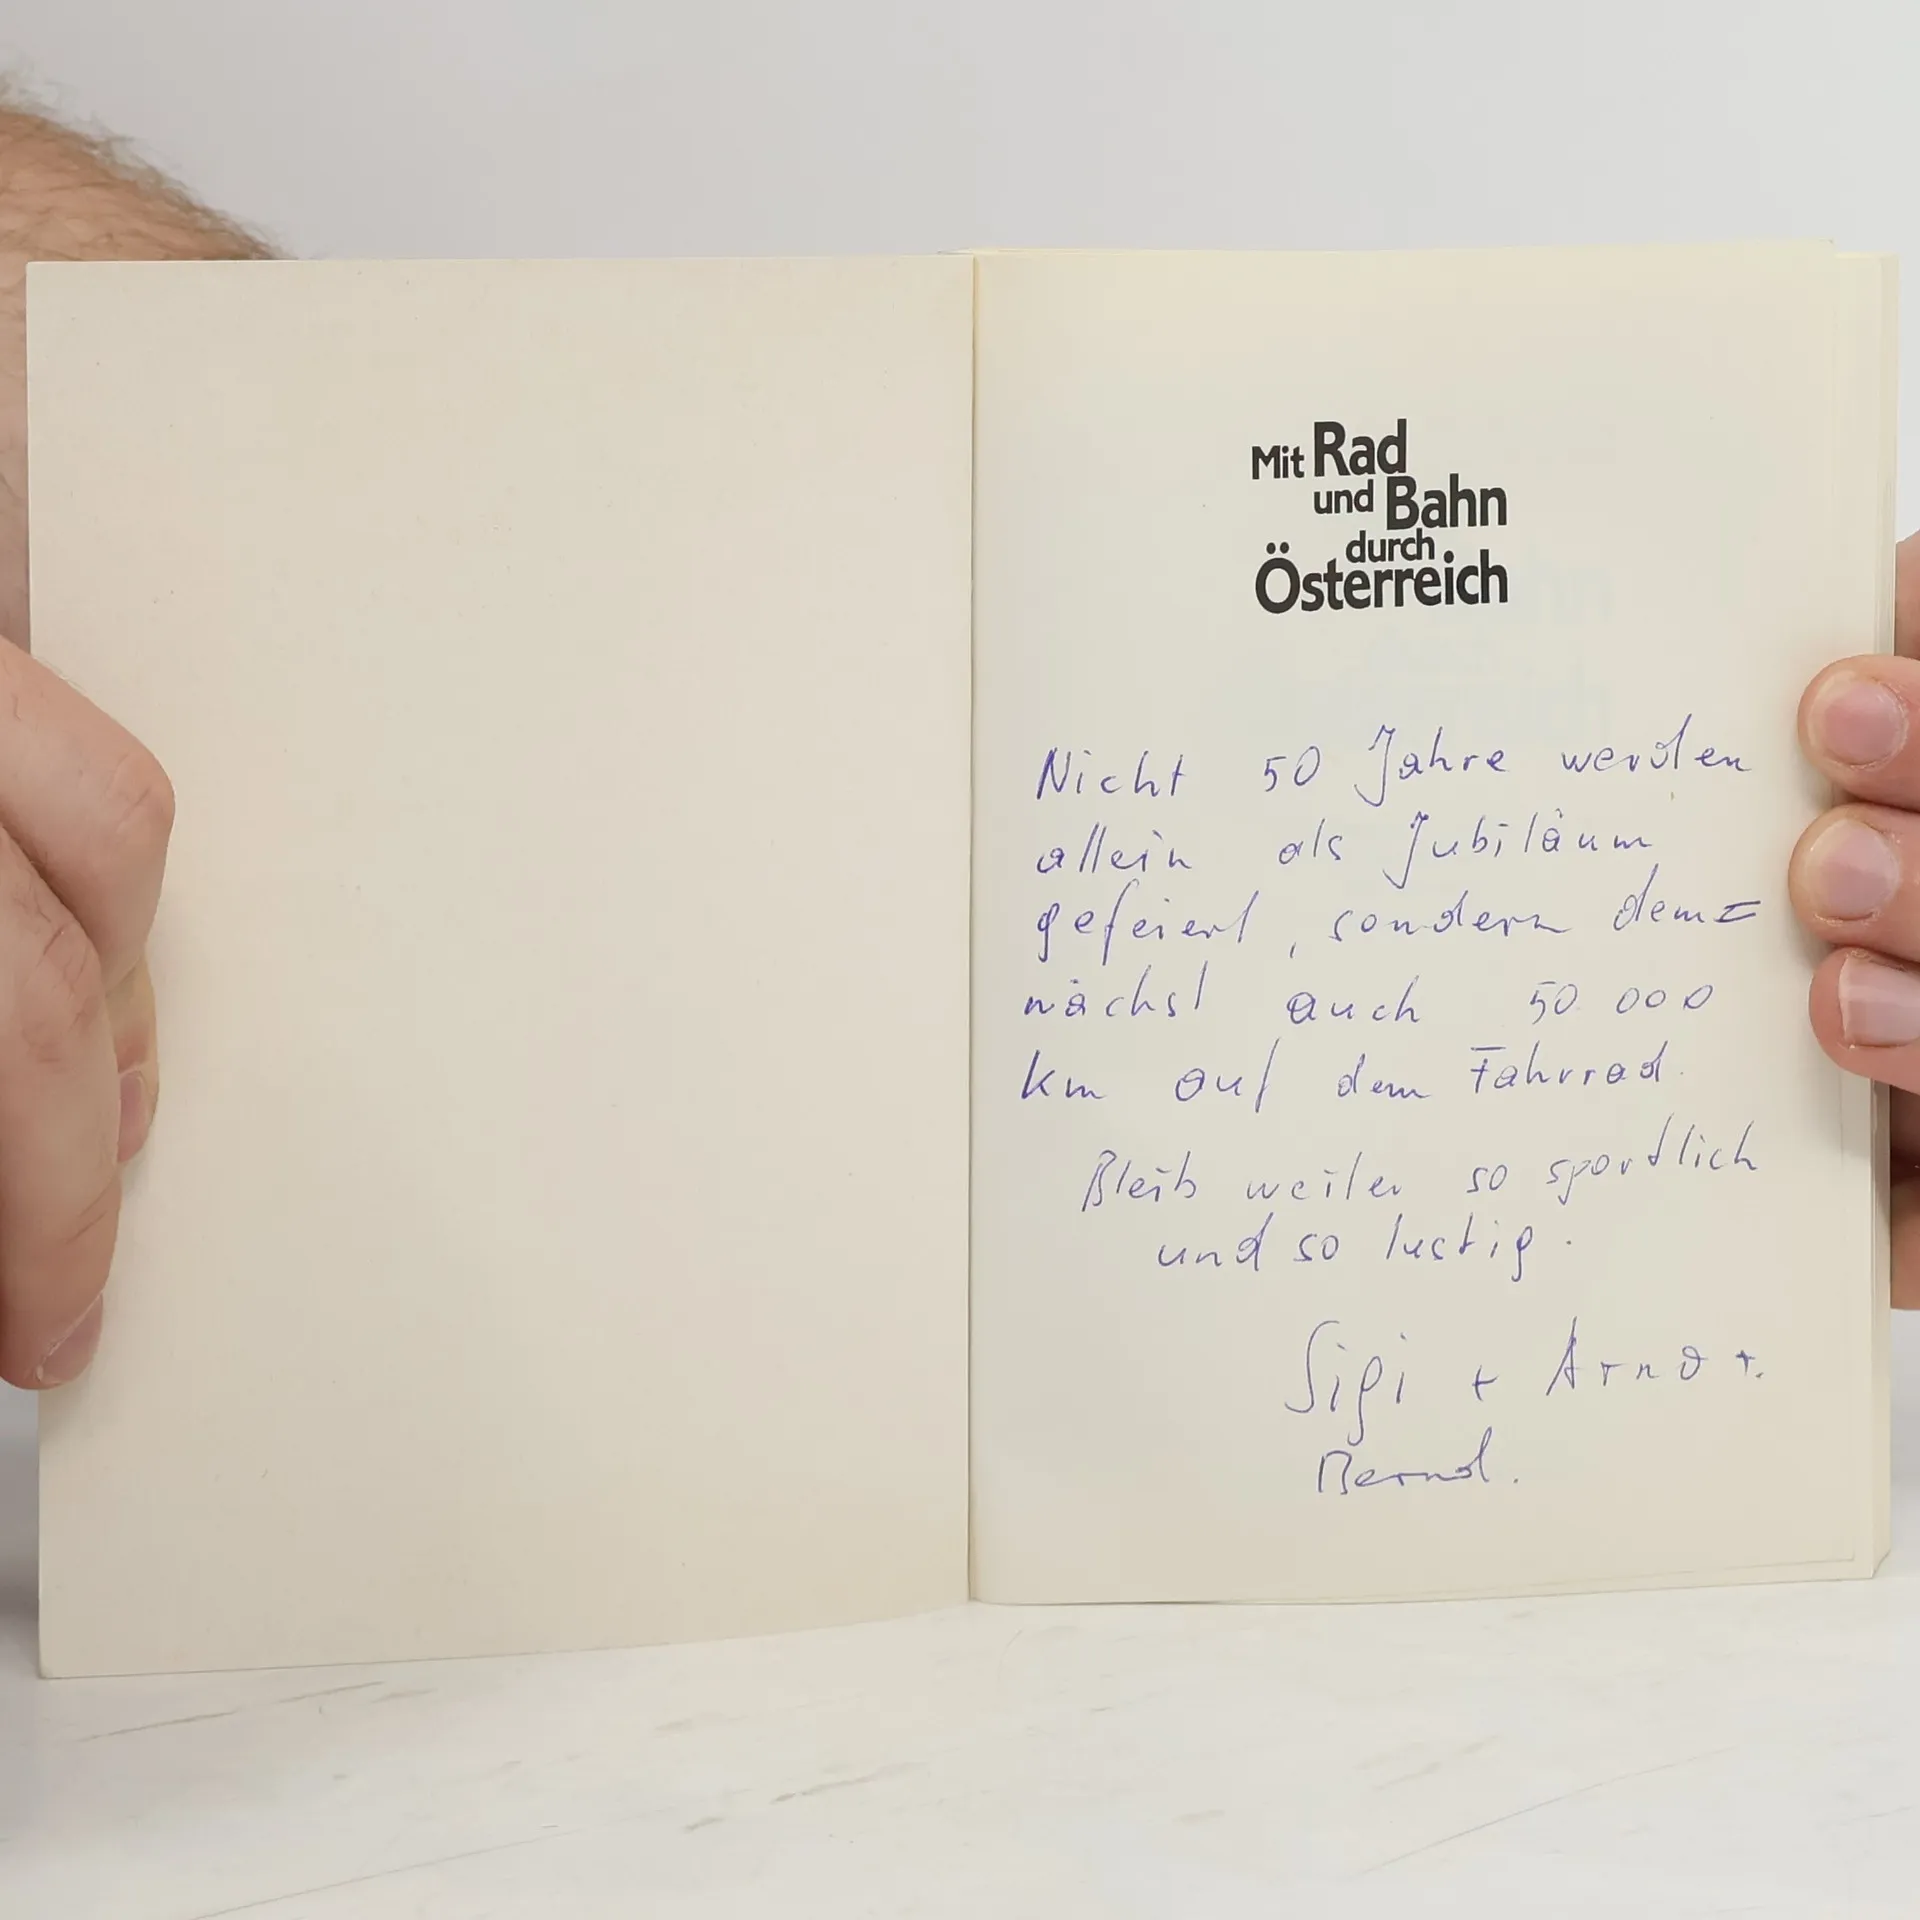 Mit Rad
und Bahn
durch
Österreich
Nicht 50 Jahre werden
allein als Jubiläum
gefeiert, sondern dem=
nächst auch 50 000
km auf dem Fahrrad.
Bleib weiter so sportlich
und so lustig.
Sigi + Arno +.
Bernd.